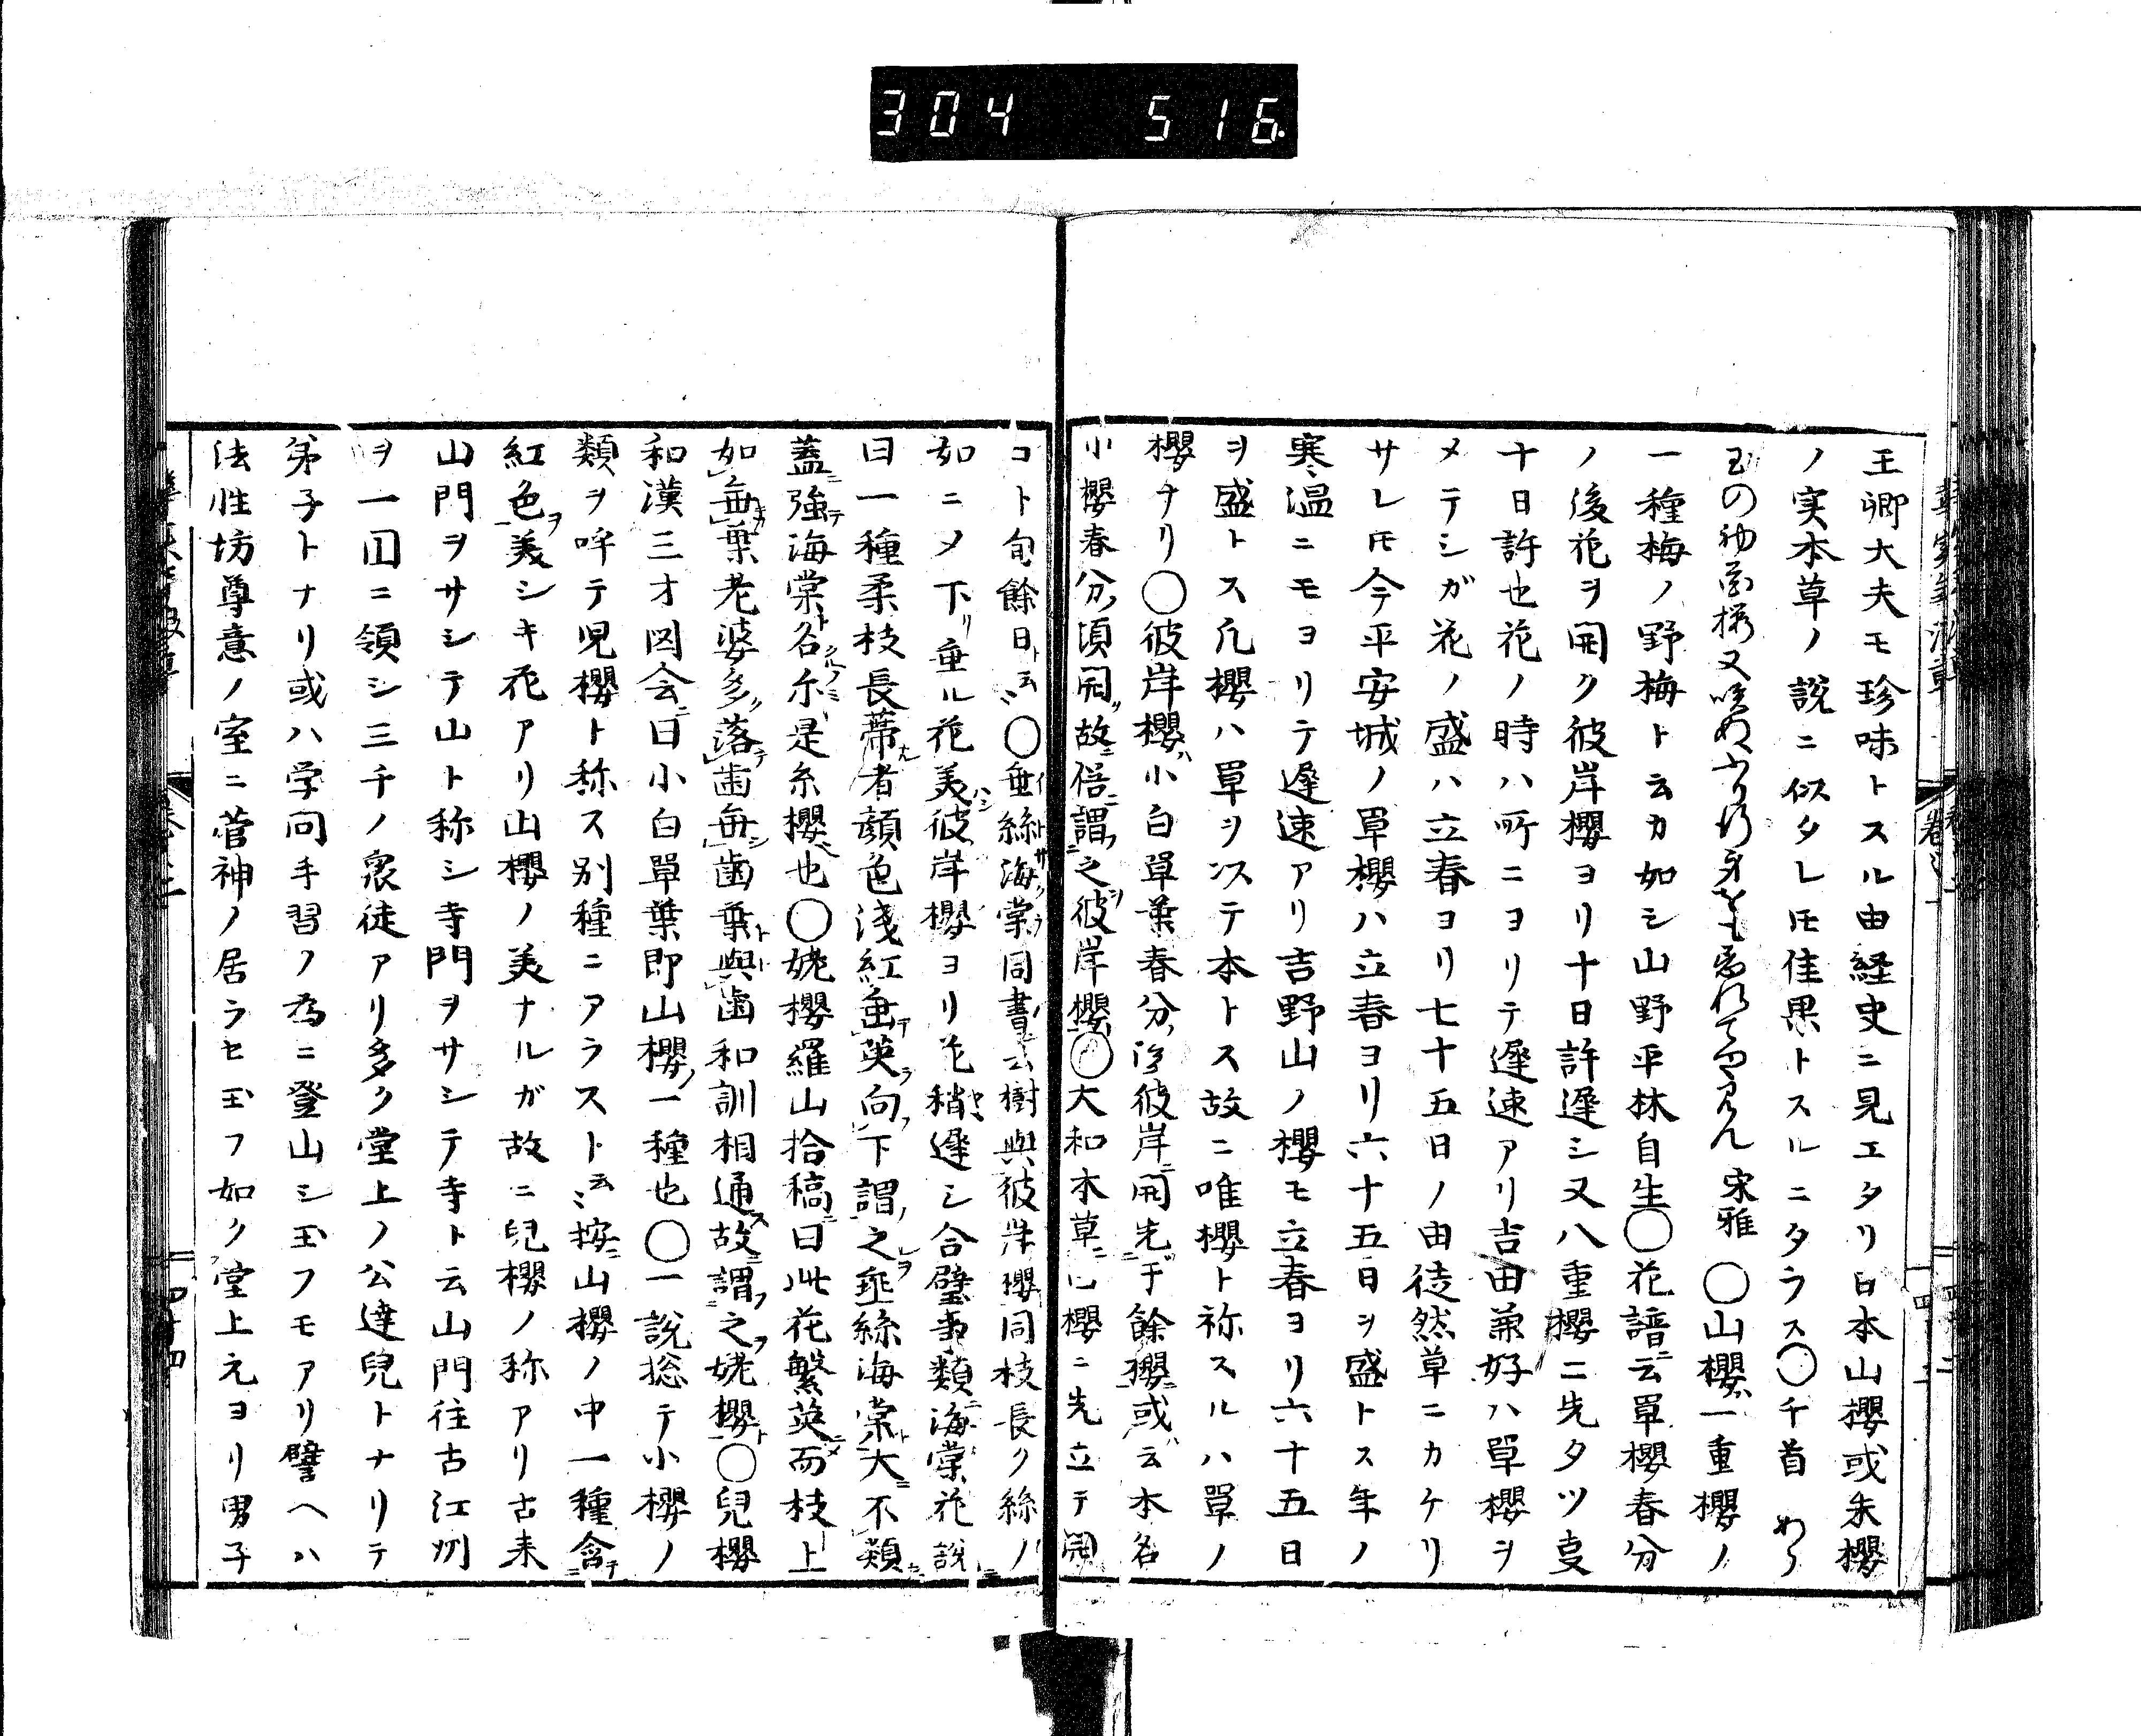 304 516
王卿大夫モ珍味トスル由経史ニ見エタリ日本山櫻或朱櫻
ノ実本草ノ説ニ似タレ𪜈佳果トスルニタラス〇千首
宋雅 〇山櫻一重櫻ノ
一種梅ノ野梅ト云カ如シ山野平林自生〇花譜ニ云單櫻春分
ノ後花ヲ開ク彼岸櫻ヨリ十日許遲シ又八重櫻ニ先タツ㕝
十日許也花ノ時ハ所ニヨリテ遲速アリ吉田兼好ハ單櫻ヲ
メテシガ花ノ盛ハ立春ヨリ七十五日ノ由徒然草ニカケリ
サレ𪜈今平安城ノ單櫻ハ立春ヨリ六十五日ヲ盛トス年ノ
寒温ニモヨリテ遲速アリ吉野山ノ櫻モ立春ヨリ六十五日
ヲ盛トス凡櫻ハ單ヲ以テ本トス故ニ唯櫻ト称スルハ單ノ
櫻ナリ〇彼岸櫻ハ小白單葉春分彼岸ニ開先于餘櫻或云本名
小櫻春分頃開故ニ俗謂之彼岸櫻〇大和本草ニ櫻ニ先立テ開
コト旬餘日ト云〻〇垂絲海棠同書云樹與彼岸櫻同枝長ク絲ノ
如ニメ下リ垂ル花美彼岸櫻ヨリ花稍遲シ合璧事類海棠花説
曰一種柔枝長蔕者顔色浅紅垂英向下謂之垂絲海棠大不類
蓋強海棠名尓是糸櫻也〇姥櫻羅山拾稿曰此花繁英而枝上
如無葉老婆多落歯無歯葉與歯和訓相通故謂之姥櫻〇兒櫻
和漢三才図会曰小白單葉即山櫻ノ一種也〇一説捴テ小櫻ノ
類ヲ呼テ児櫻ト称ス別種ニアラスト云〻按ニ山櫻ノ中一種含
紅色美シキ花アリ山櫻ノ美ナルガ故ニ兒櫻ノ称アリ古来
山門ヲサシテ山ト称シ寺門ヲサシテ寺ト云山門往古江州
ヲ一囯ニ領シ三千ノ衆徒アリ多ク堂上ノ公達兒トナリテ
弟子トナリ或ハ学问手習ノ為ニ登山シ玉フモアリ譬ヘハ
法性坊尊意ノ室ニ菅神ノ居ラセ玉フ如ク堂上元ヨリ男子
四十四